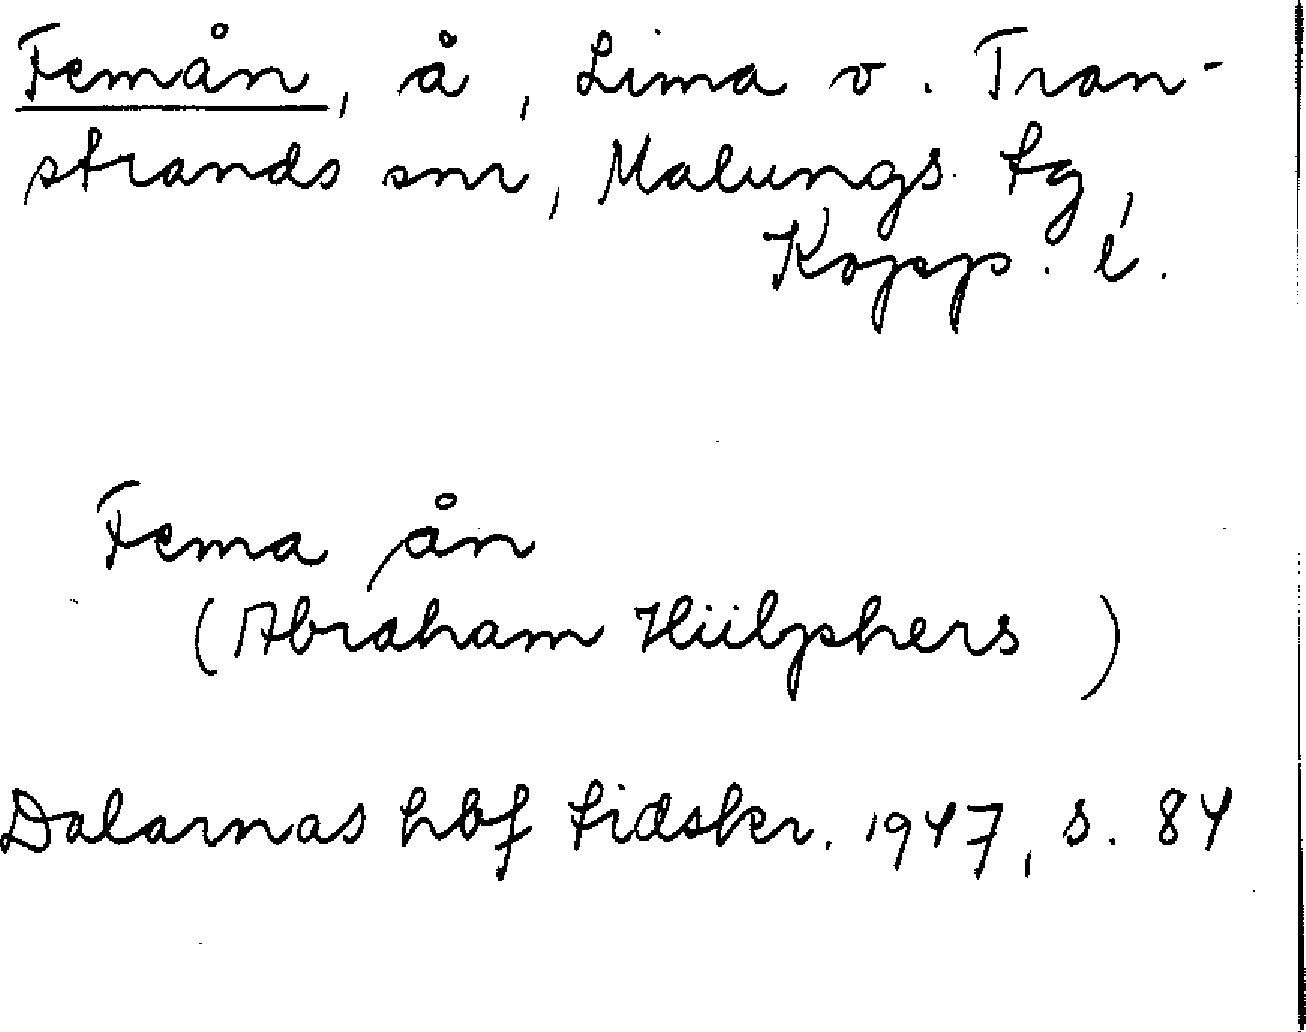 Femån, å, Lima o. Tran-
strands snr, Malungs tg,
Kopp. l.
Fema ån
(Abraham Hülphers)
Dalarnas hbf tidskr. 1947, s. 84